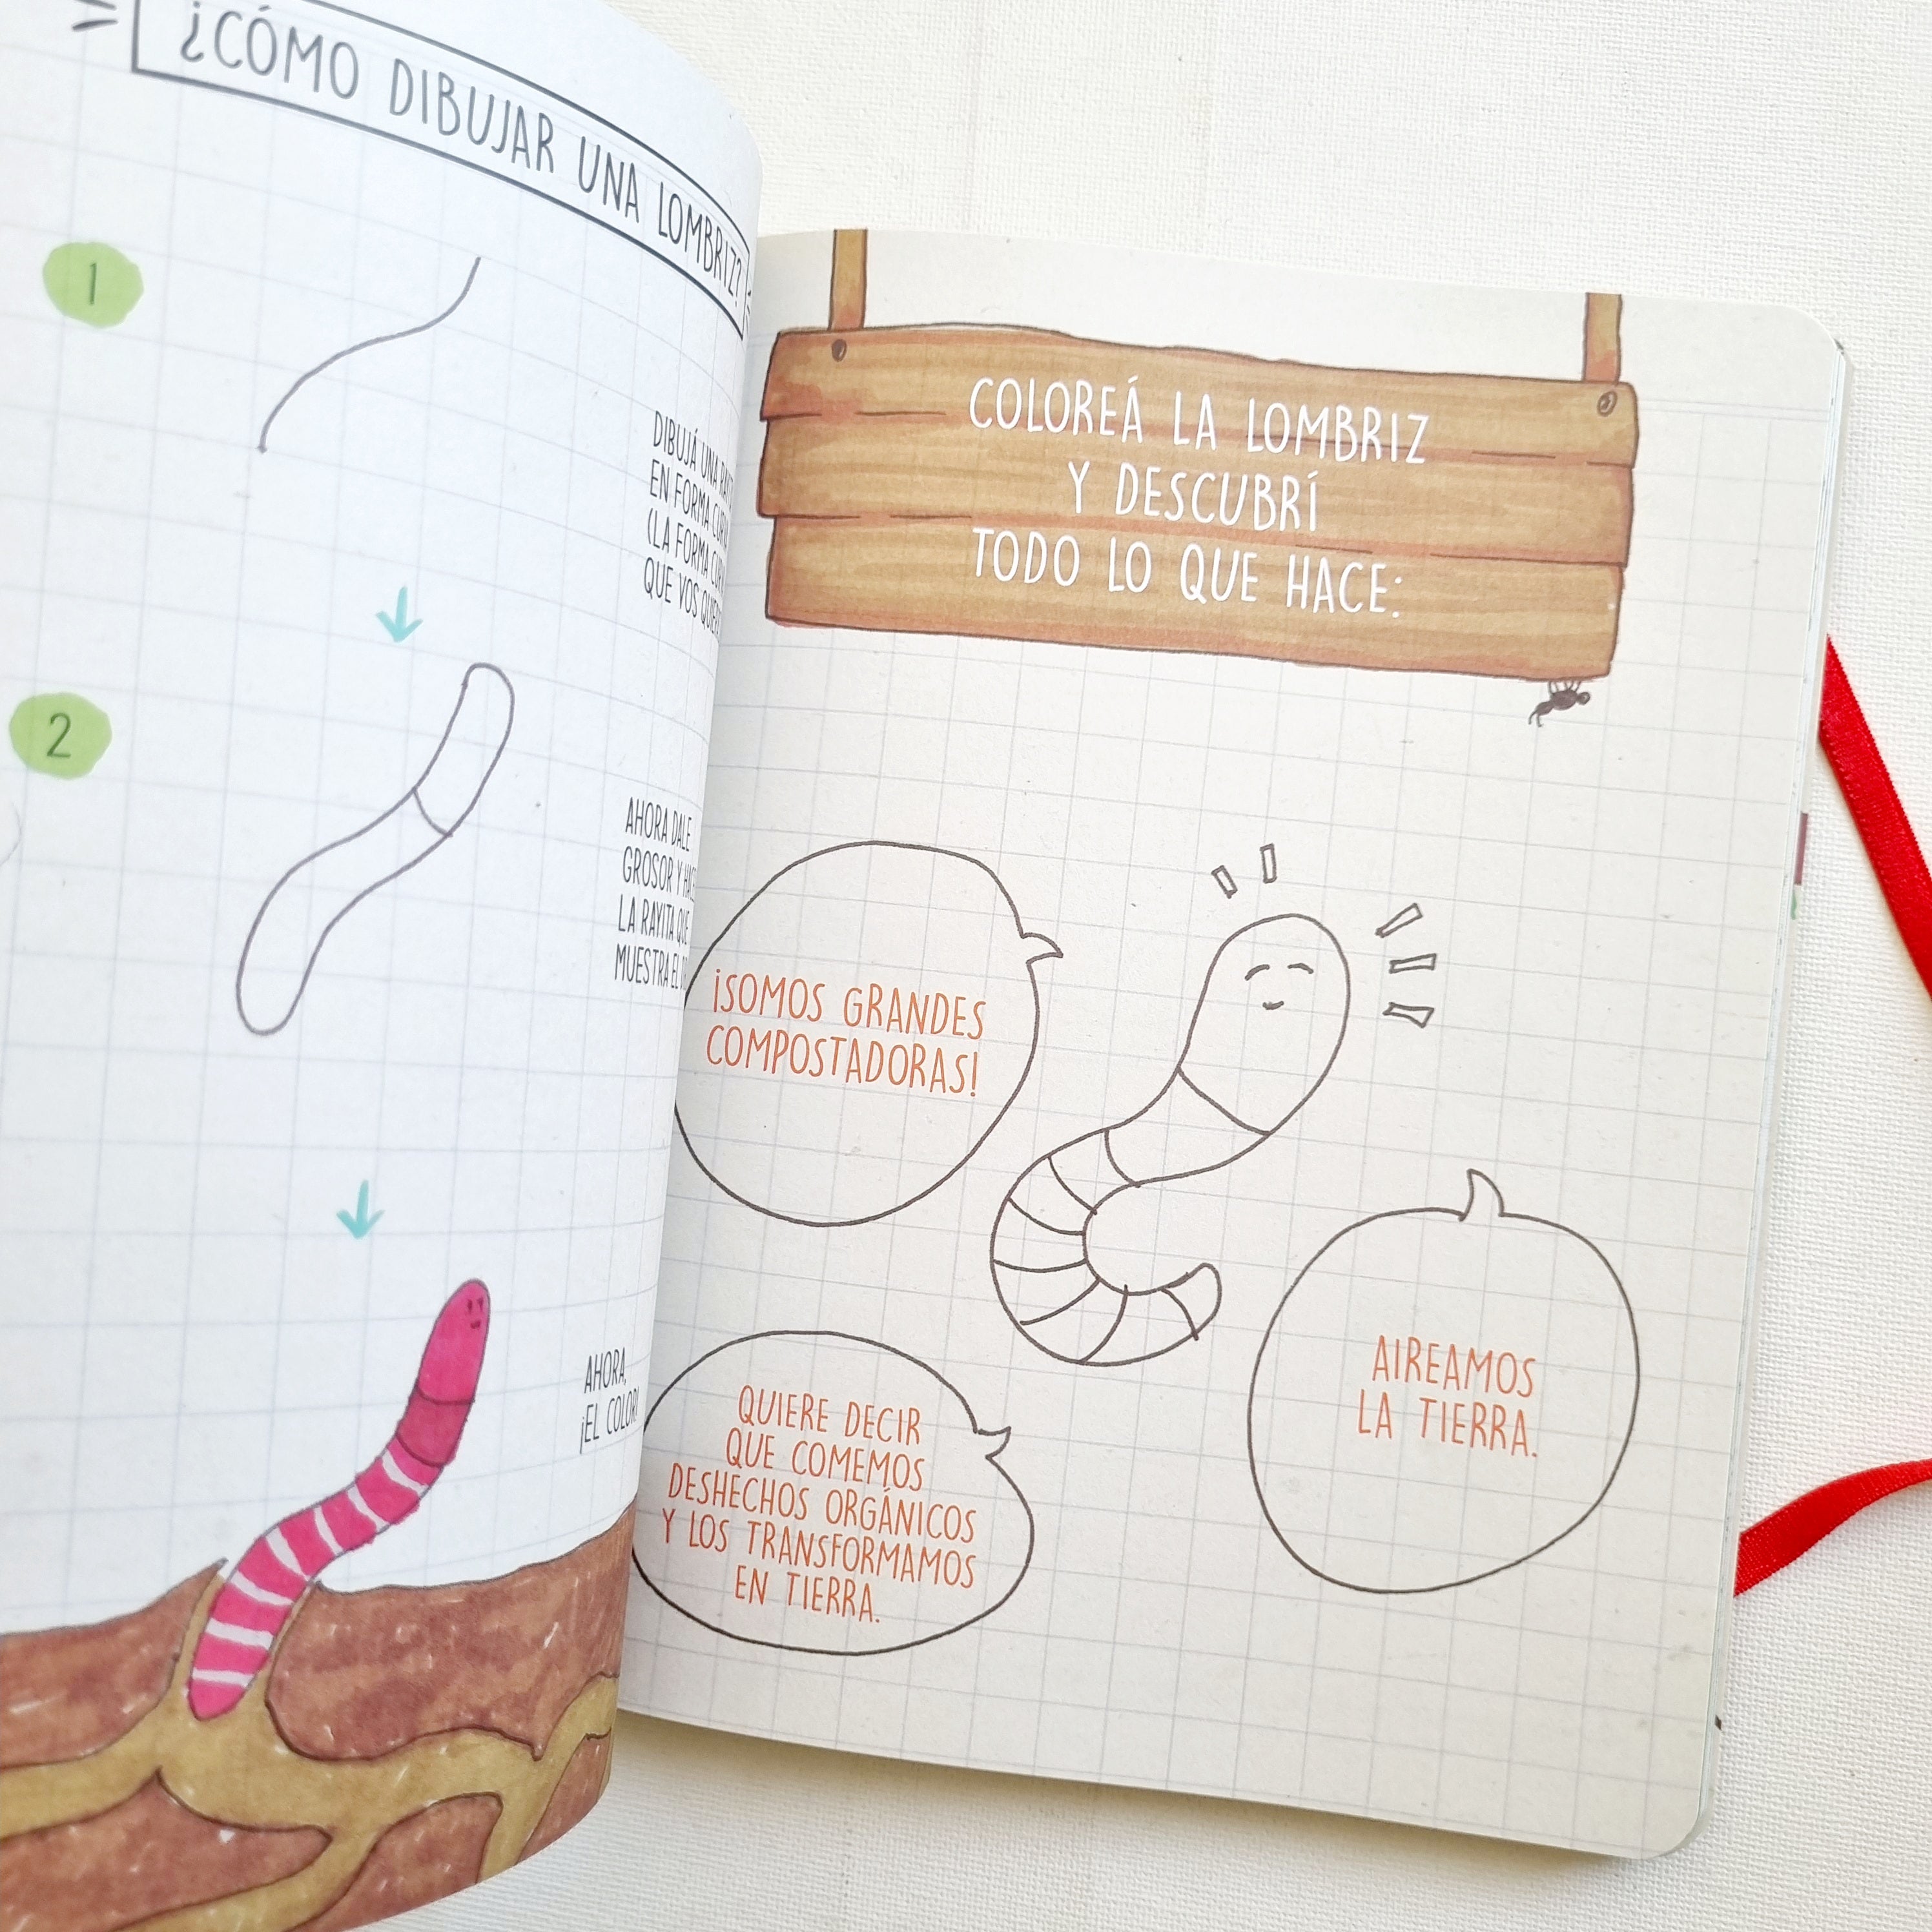 ¿CÓMO DIBUJAR UNA LOMBRIZ?
1
DIBUJÁ UNA
EN FORMA
(LA FORMA
QUE VOS
2
AHORA DALE
GROSOR Y
LA RAYITA QUE
MUESTRA EL
AHORA,
¡EL COLOR!
COLOREÁ LA LOMBRIZ
Y DESCUBRÍ
TODO LO QUE HACE:
¡SOMOS GRANDES
COMPOSTADORAS!
QUIERE DECIR
QUE COMEMOS
DESHECHOS ORGÁNICOS
Y LOS TRANSFORMAMOS
EN TIERRA.
AIREAMOS
LA TIERRA.